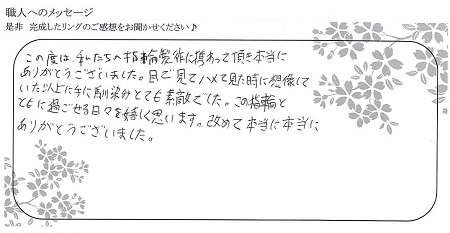 職人へのメッセージ
是非 完成したリングのご感想をお聞かせください♪
この度は、私たちの指輪製作に携わって頂き本当に
ありがとうございました。目で見てハメを見た時に想像して
いた以上に手に馴染みとても素敵でした。この指輪と
ともに過ごせる日々を嬉しく思います。改めて本当に本当に
ありがとうございました。